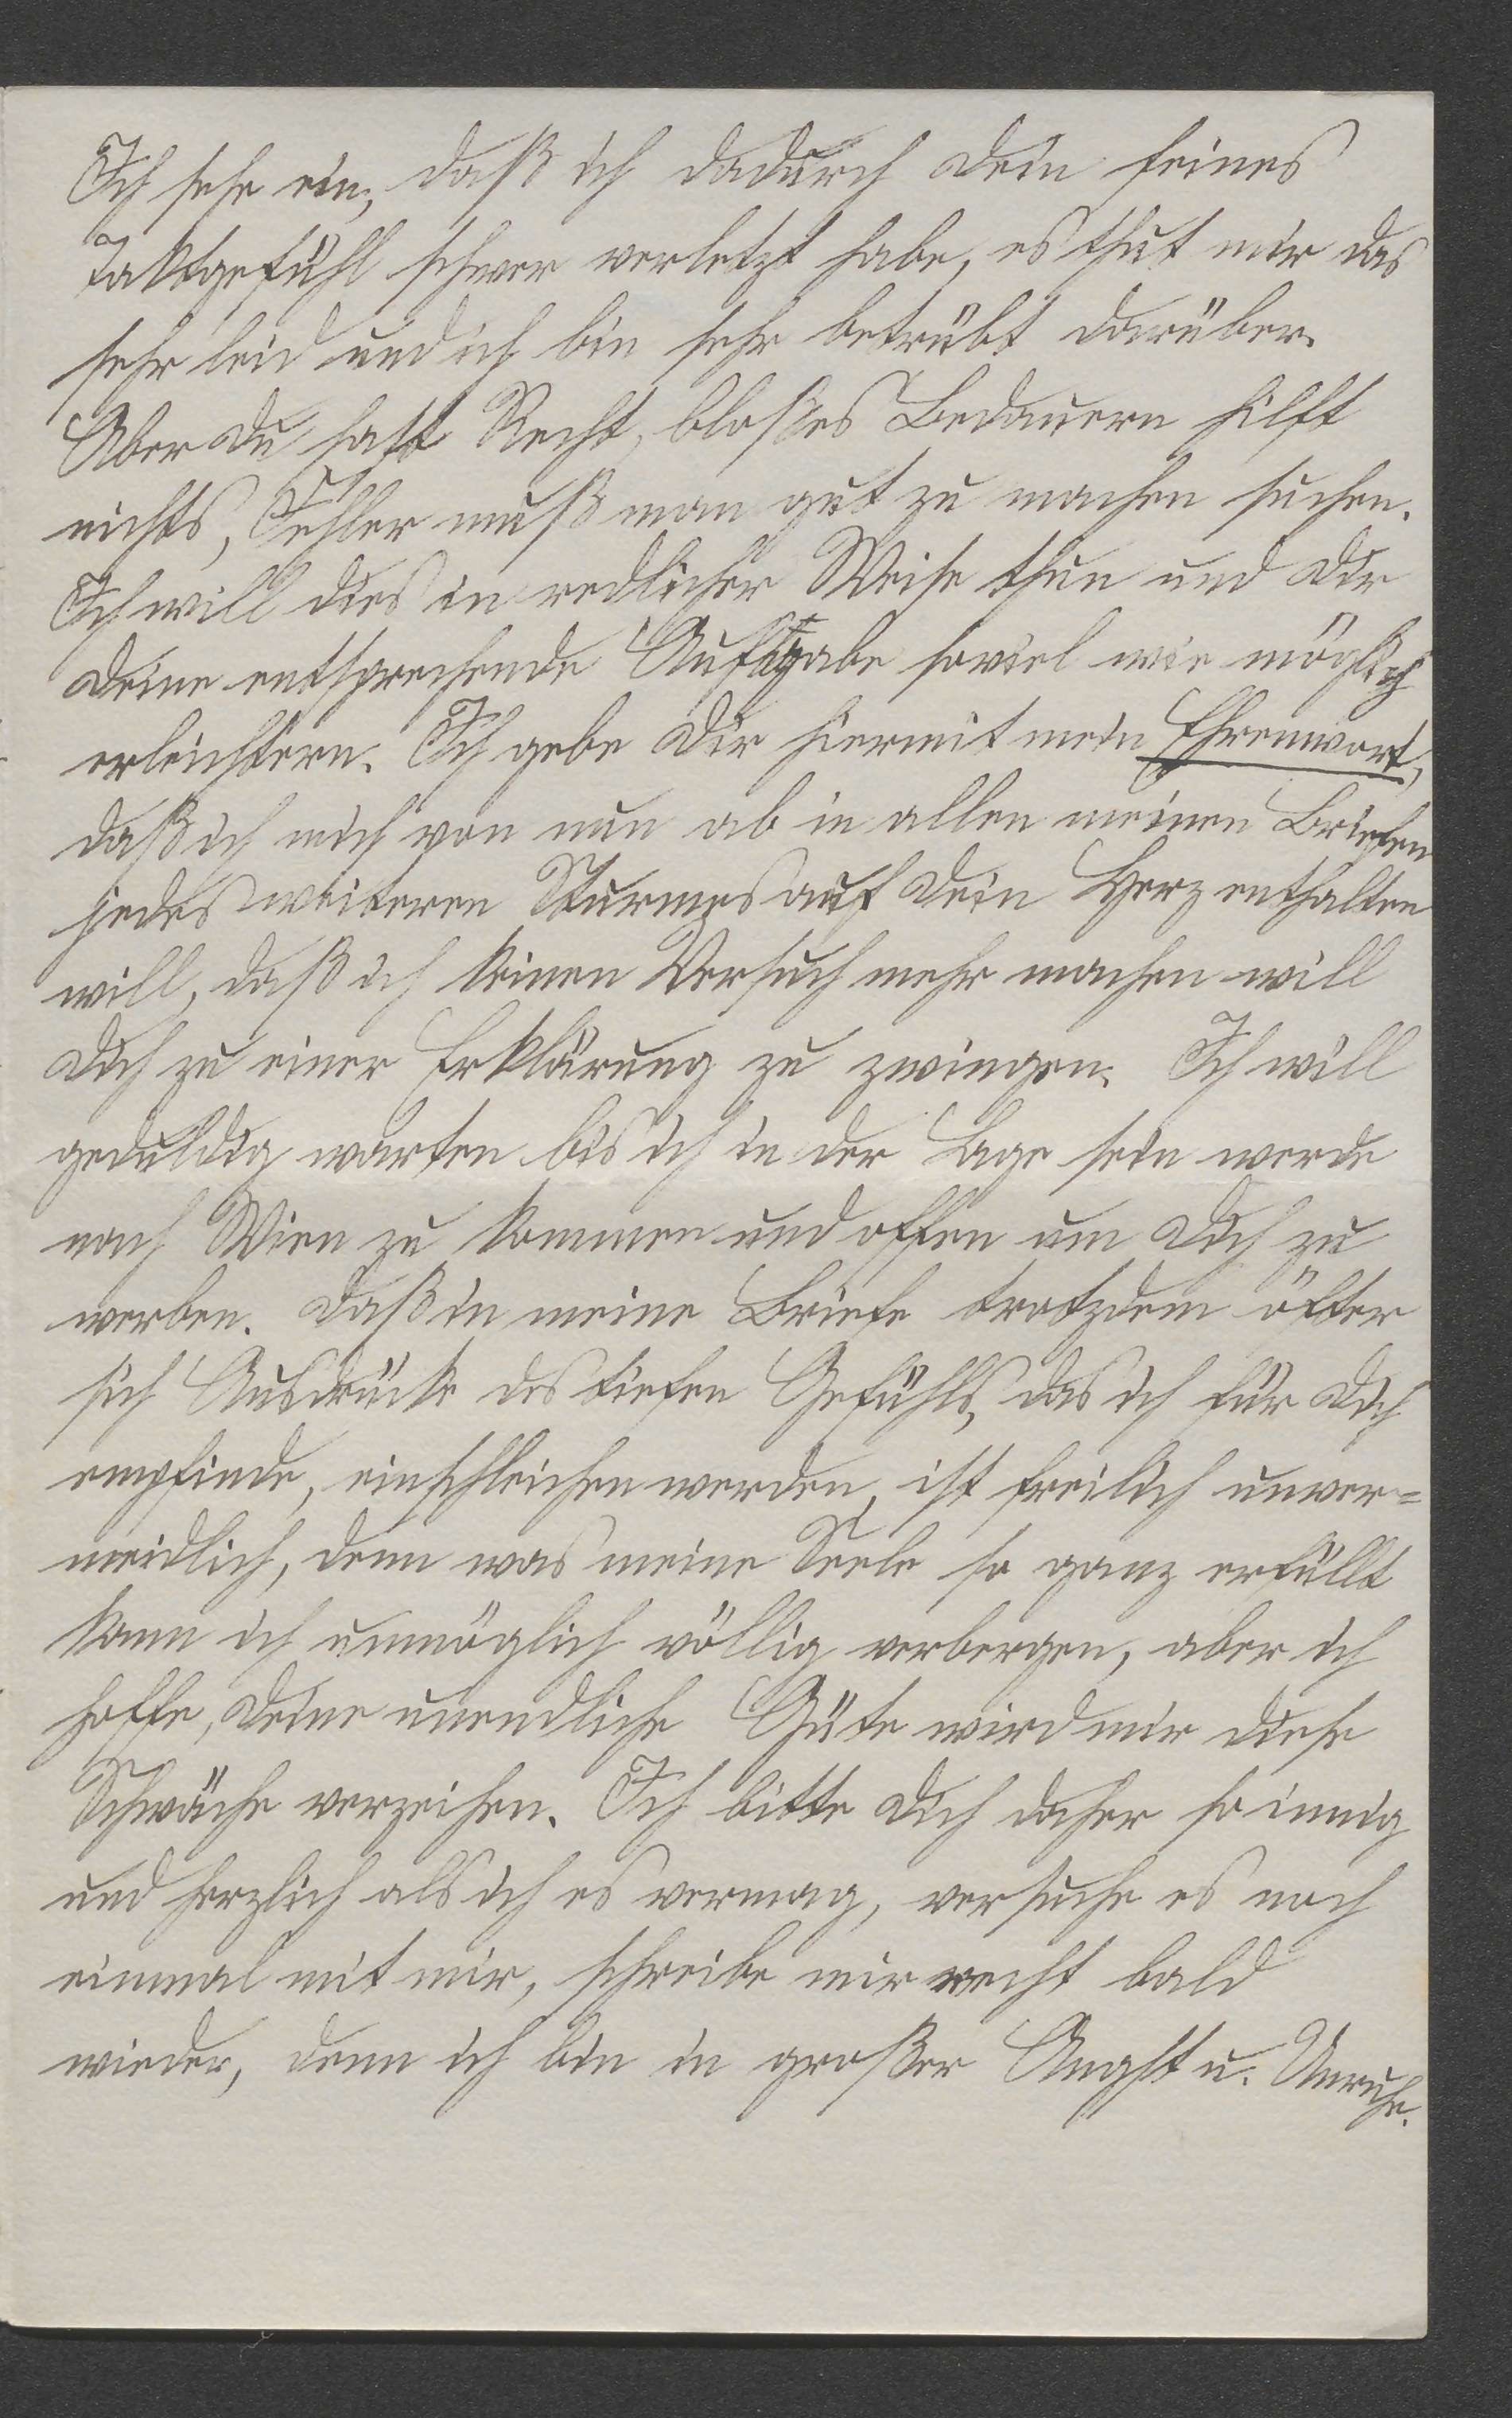 Ich sehe ein, daß ich dadurch Dein feines
Taktgefühl schwer verletzt habe, es thut mir das
sehr leid und ich bin sehr betrübt darüber.
Aber Du hast Recht, bloßes Bedauern hilft
nichts, Fehler muß man gut zu machen suchen.
Ich will dies in redlicher Weise thun und Dir
Deine entsprechende Aufgabe soviel wie möglich
erleichtern. Ich gebe Dir hiermit mein Ehrenwort,
daß ich mich von nun ab in allen meinen Briefen
jedes weiteren Sturmes auf Dein Herz enthalten
will, daß ich keinen Versuch mehr machen will
Dich zu einer Erklärung zu zwingen. Ich will
geduldig warten bis ich in der Lage sein werde
nach Wien zu kommen und offen um Dich zu
werben. Daß in meine Briefe trotzdem öfter
sich Ausdrücke des tiefen Gefühls, das ich für Dich
empfinde, einschleichen werden, ist freilich unver=
meidlich, denn was meine Seele so ganz erfüllt
kann ich unmöglich völlig verbergen, aber ich
hoffe, Deine unendliche Güte wird mir diese
Schwäche verzeihen. Ich bitte Dich daher so innig
und herzlich als ich es vermag, versuche es noch
einmal mit mir, schreibe mir recht bald
wieder, denn ich bin in großer Angst u. Unruhe.